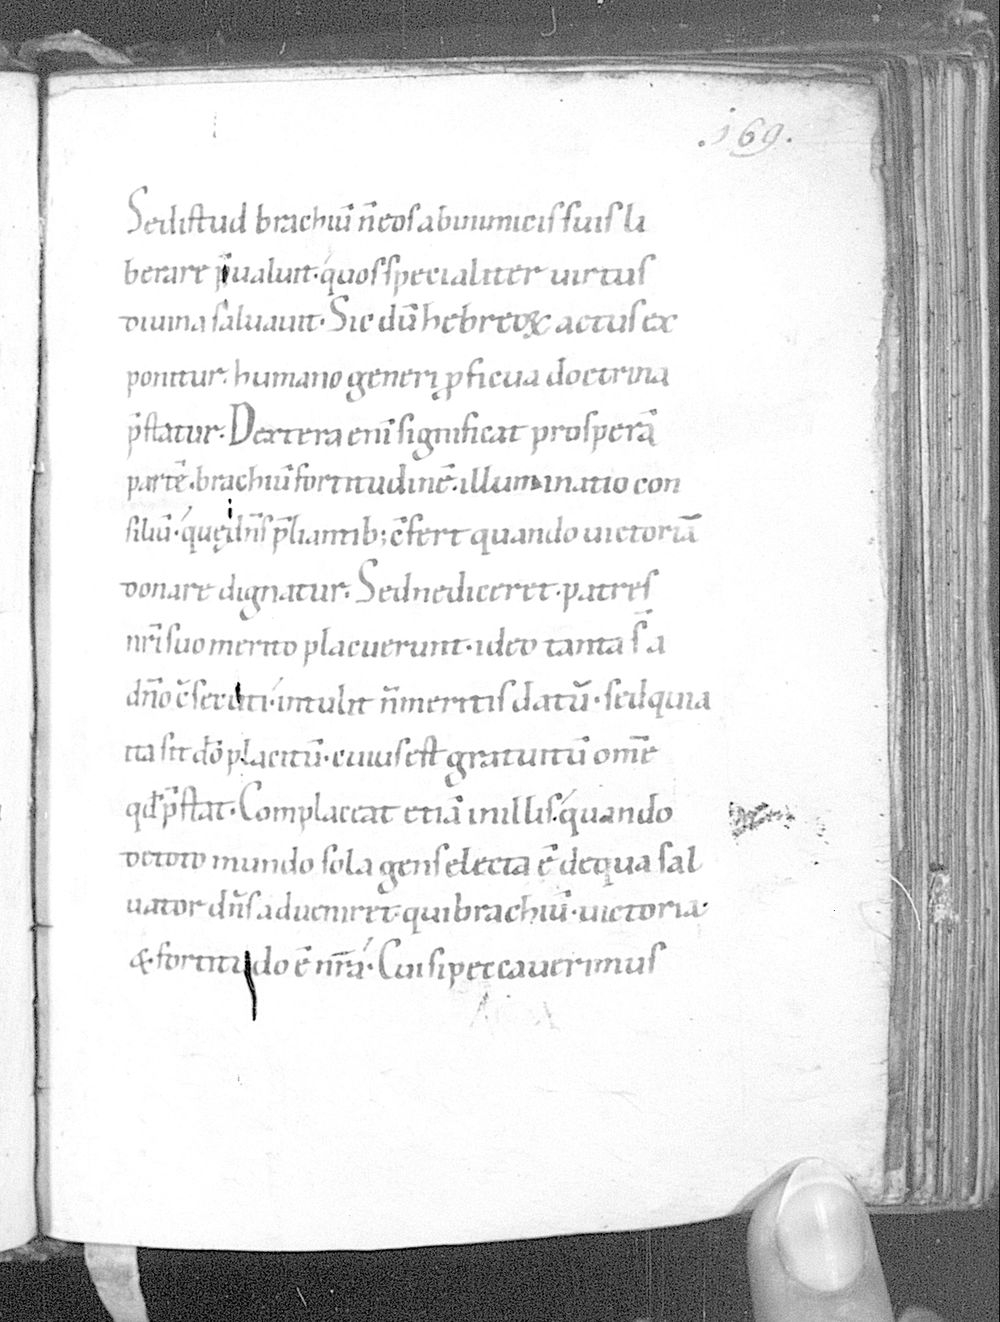 .169.
Sed istud brachiū n̄ eos ab inimicis suis li
berare p̄ualuit· quos specialiter uirtus
diuina saluauit· Sic dū hebreoꝝ actus ex
ponitur· humano generi ꝓficua doctrina
p̄statur· Dextera enī significat prosperā
partē· brachiū fortitudinē· illuminatio con
siliū· que dn̄s p̄liantib; c̄fert quando uictoriā
donare dignatur· Sed ne diceret· patres
nr̄i suo merito placuerunt· ideo tanta s̄ a
dn̄o c̄secuti· intulit n̄ meritis datū· sed quia
ita sit dō placitū· cuius est gratuitū om̄e
qd̄ p̄stat· Complaceat etiā in illis· quando
de toto mundo sola gens electa ē de qua sal
uator dn̄s adueniret· qui brachiū· uictoria·
&· fortitudo ē nr̄a· Cui si peccauerimus